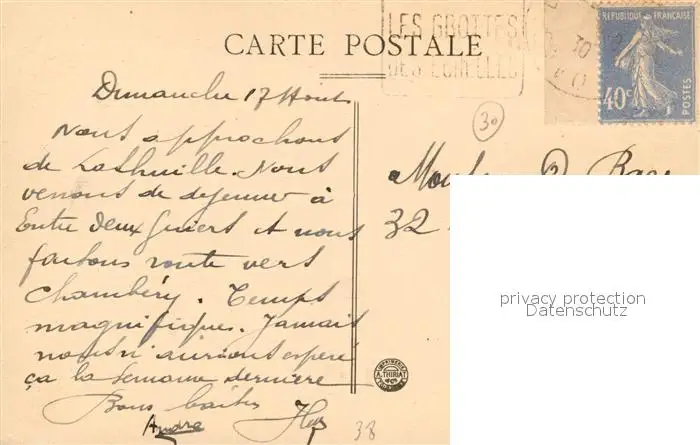 LES GROTTES
DES ECHELLES
CARTE POSTALE
REPUBLIQUE FRANÇAISE
40c
POSTES
30
Dimanche 17 Aout
Nous approchons
de Nous
venons de dejeuner à
Entre deux Guiers et nous
partons route vers
Chambéry. Temps
magnifique. Jamais
nous n'aurions espéré
ça la semaine dernière
Bons
André
38
32
IMPRIMERIE
A. THIRIAT
privacy protection
Datenschutz